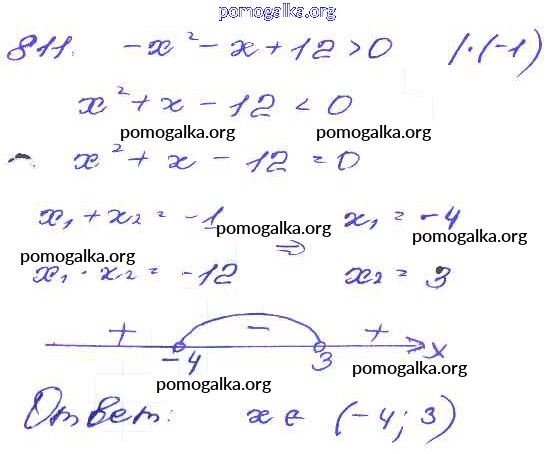 pomogalka.org
811. -x² - x + 12 > 0 /·(-1)
x² + x - 12 < 0
pomogalka.org pomogalka.org
x² + x - 12 = 0
x₁ + x₂ = -1 x₁ = -4
pomogalka.org ⇒ pomogalka.org
pomogalka.org
x₁ · x₂ = -12 x₂ = 3
+ - +
-4 3 x
pomogalka.org pomogalka.org
Ответ: x ∈ (-4; 3)